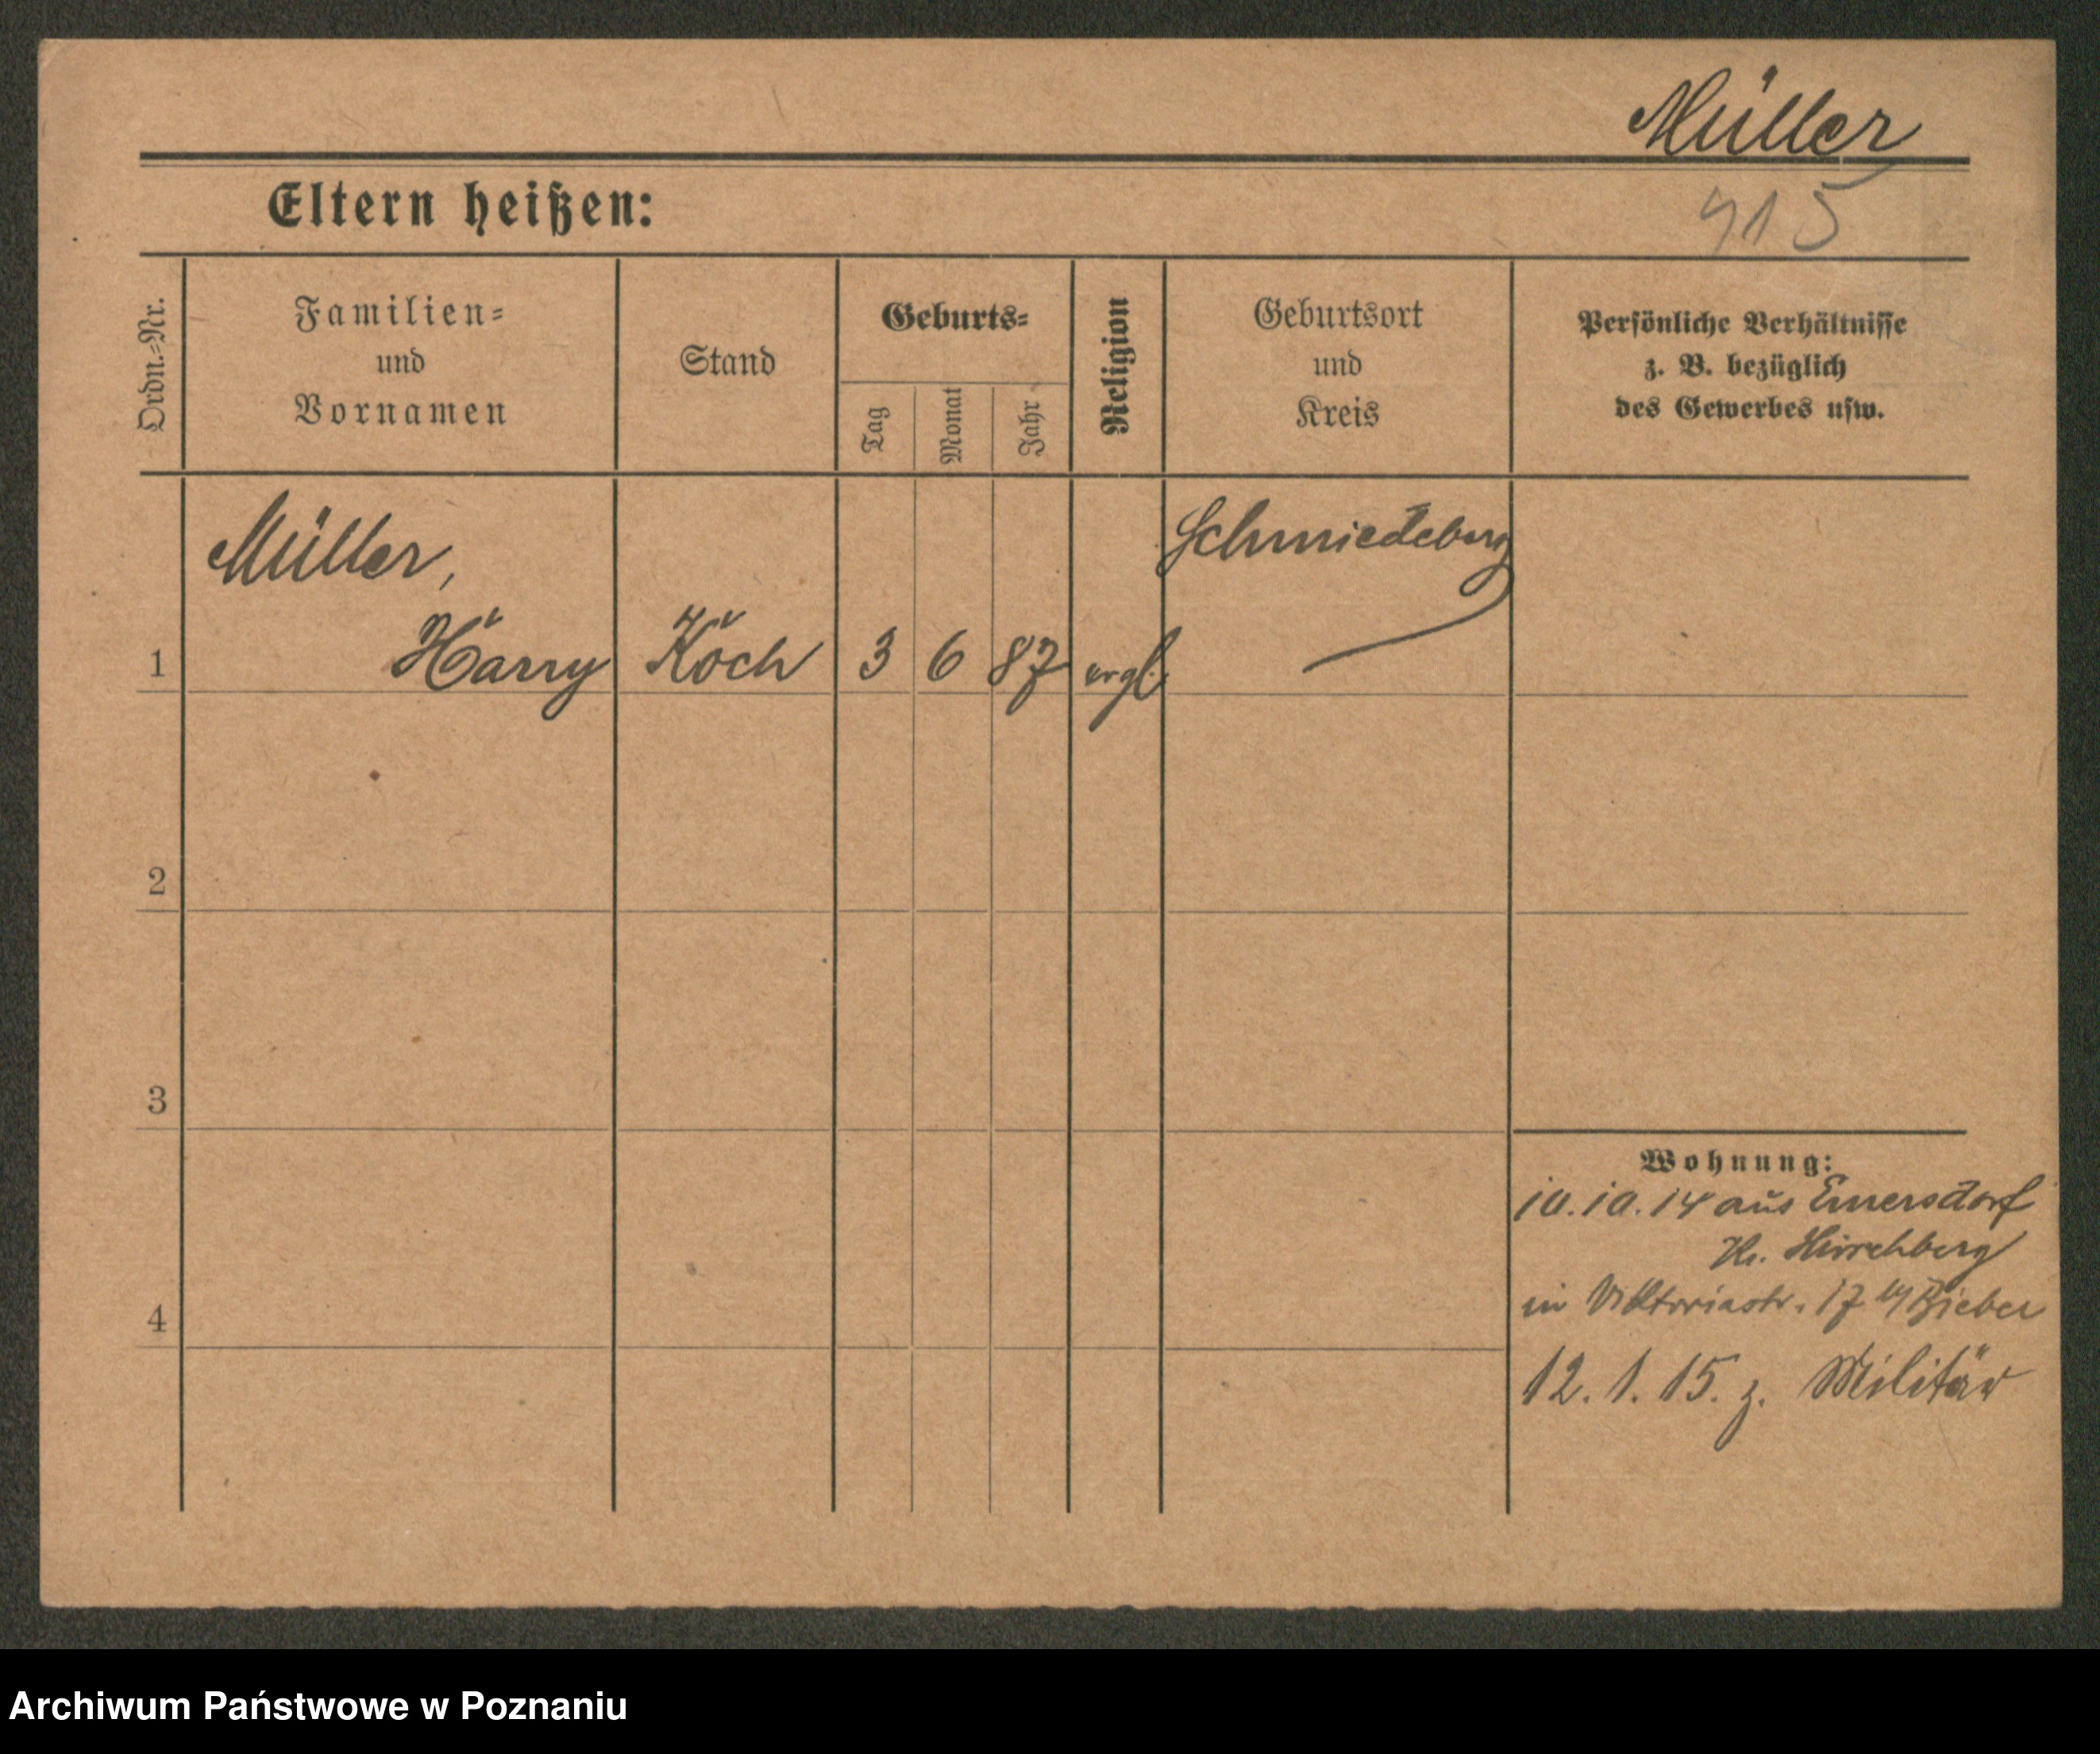 Müller
915
Eltern heißen:
Ordn.-Nr.
Familien-
und
Vornamen
Stand
Geburts-
Tag
Monat
Jahr
Religion
Geburtsort
und
Kreis
Persönliche Verhältnisse
z. B. bezüglich
des Gewerbes usw.
Müller,
Schmiedeberg
1 Harry Koch 3 6 87 evgl.
2
3
4
Wohnung:
10.10.14 aus
Kr. Hirschberg
in Viktoriastr. 17 Bieber
12.1.15. z. Militär
Archiwum Państwowe w Poznaniu